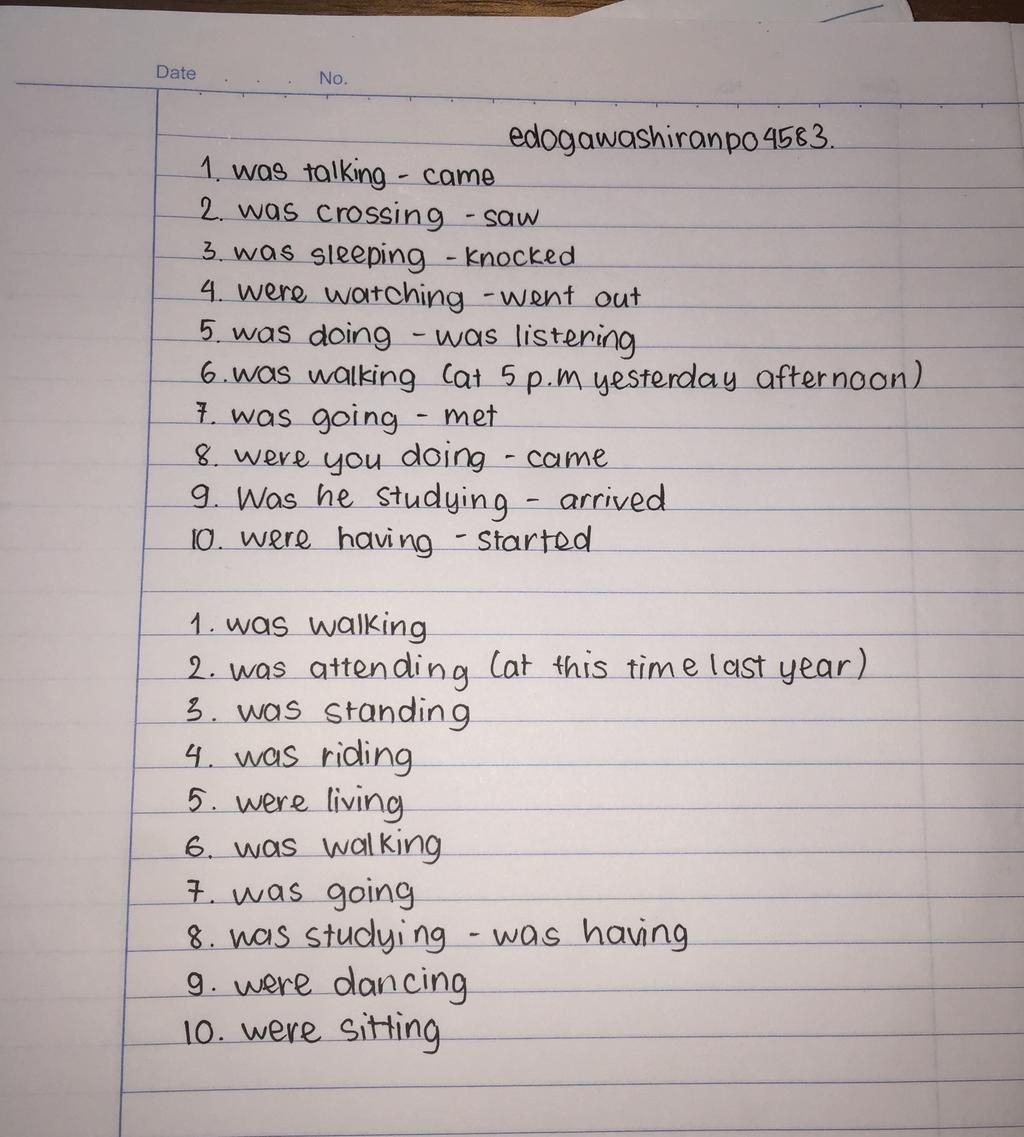 Date . . . No.
edogawashiranpo4583.
1. was talking - came
2. was crossing - saw
3. was sleeping - knocked
4. were watching - went out
5. was doing - was listening
6. was walking (at 5 p.m yesterday afternoon)
7. was going - met
8. were you doing - came
9. Was he studying - arrived
10. were having - started
1. was walking
2. was attending (at this time last year)
3. was standing
4. was riding
5. were living
6. was walking
7. was going
8. was studying - was having
9. were dancing
10. were sitting